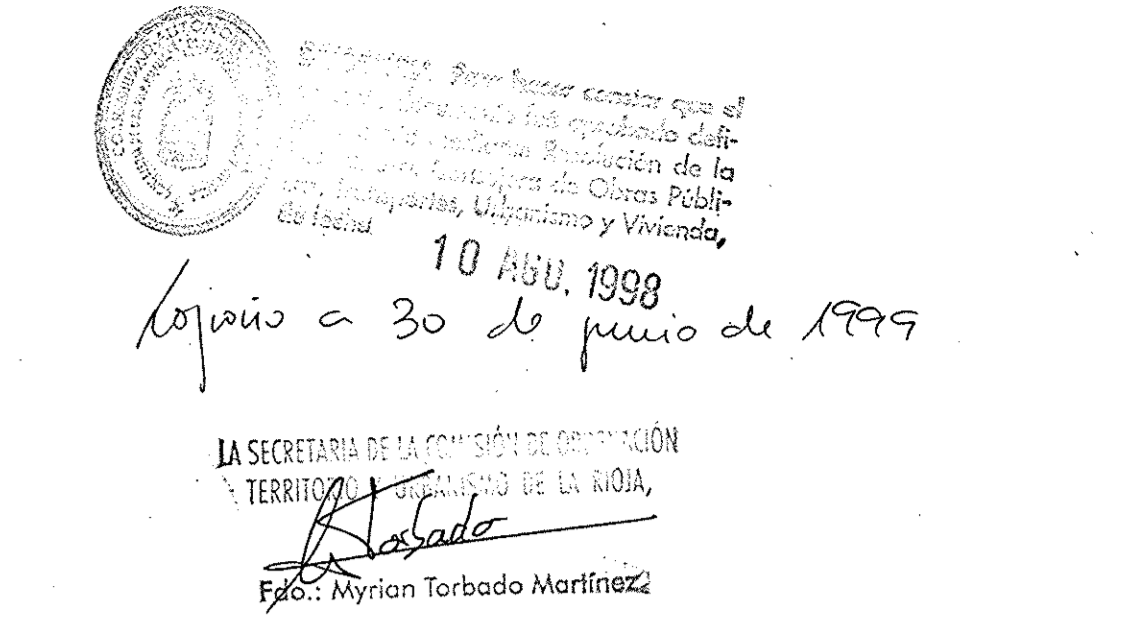 Para hacer constar que el
documento fué aprobado defi-
mediante Resolución de la
Consejera de Obras Públi-
cas, Transportes, Urbanismo y Vivienda,
de fecha
10 AGO. 1998
Logroño a 30 de junio de 1999
LA SECRETARIA DE LA COMISIÓN DE ORDENACIÓN
TERRITORIO Y URBANISMO DE LA RIOJA,
Torbado
Fdo.: Myrian Torbado Martínez